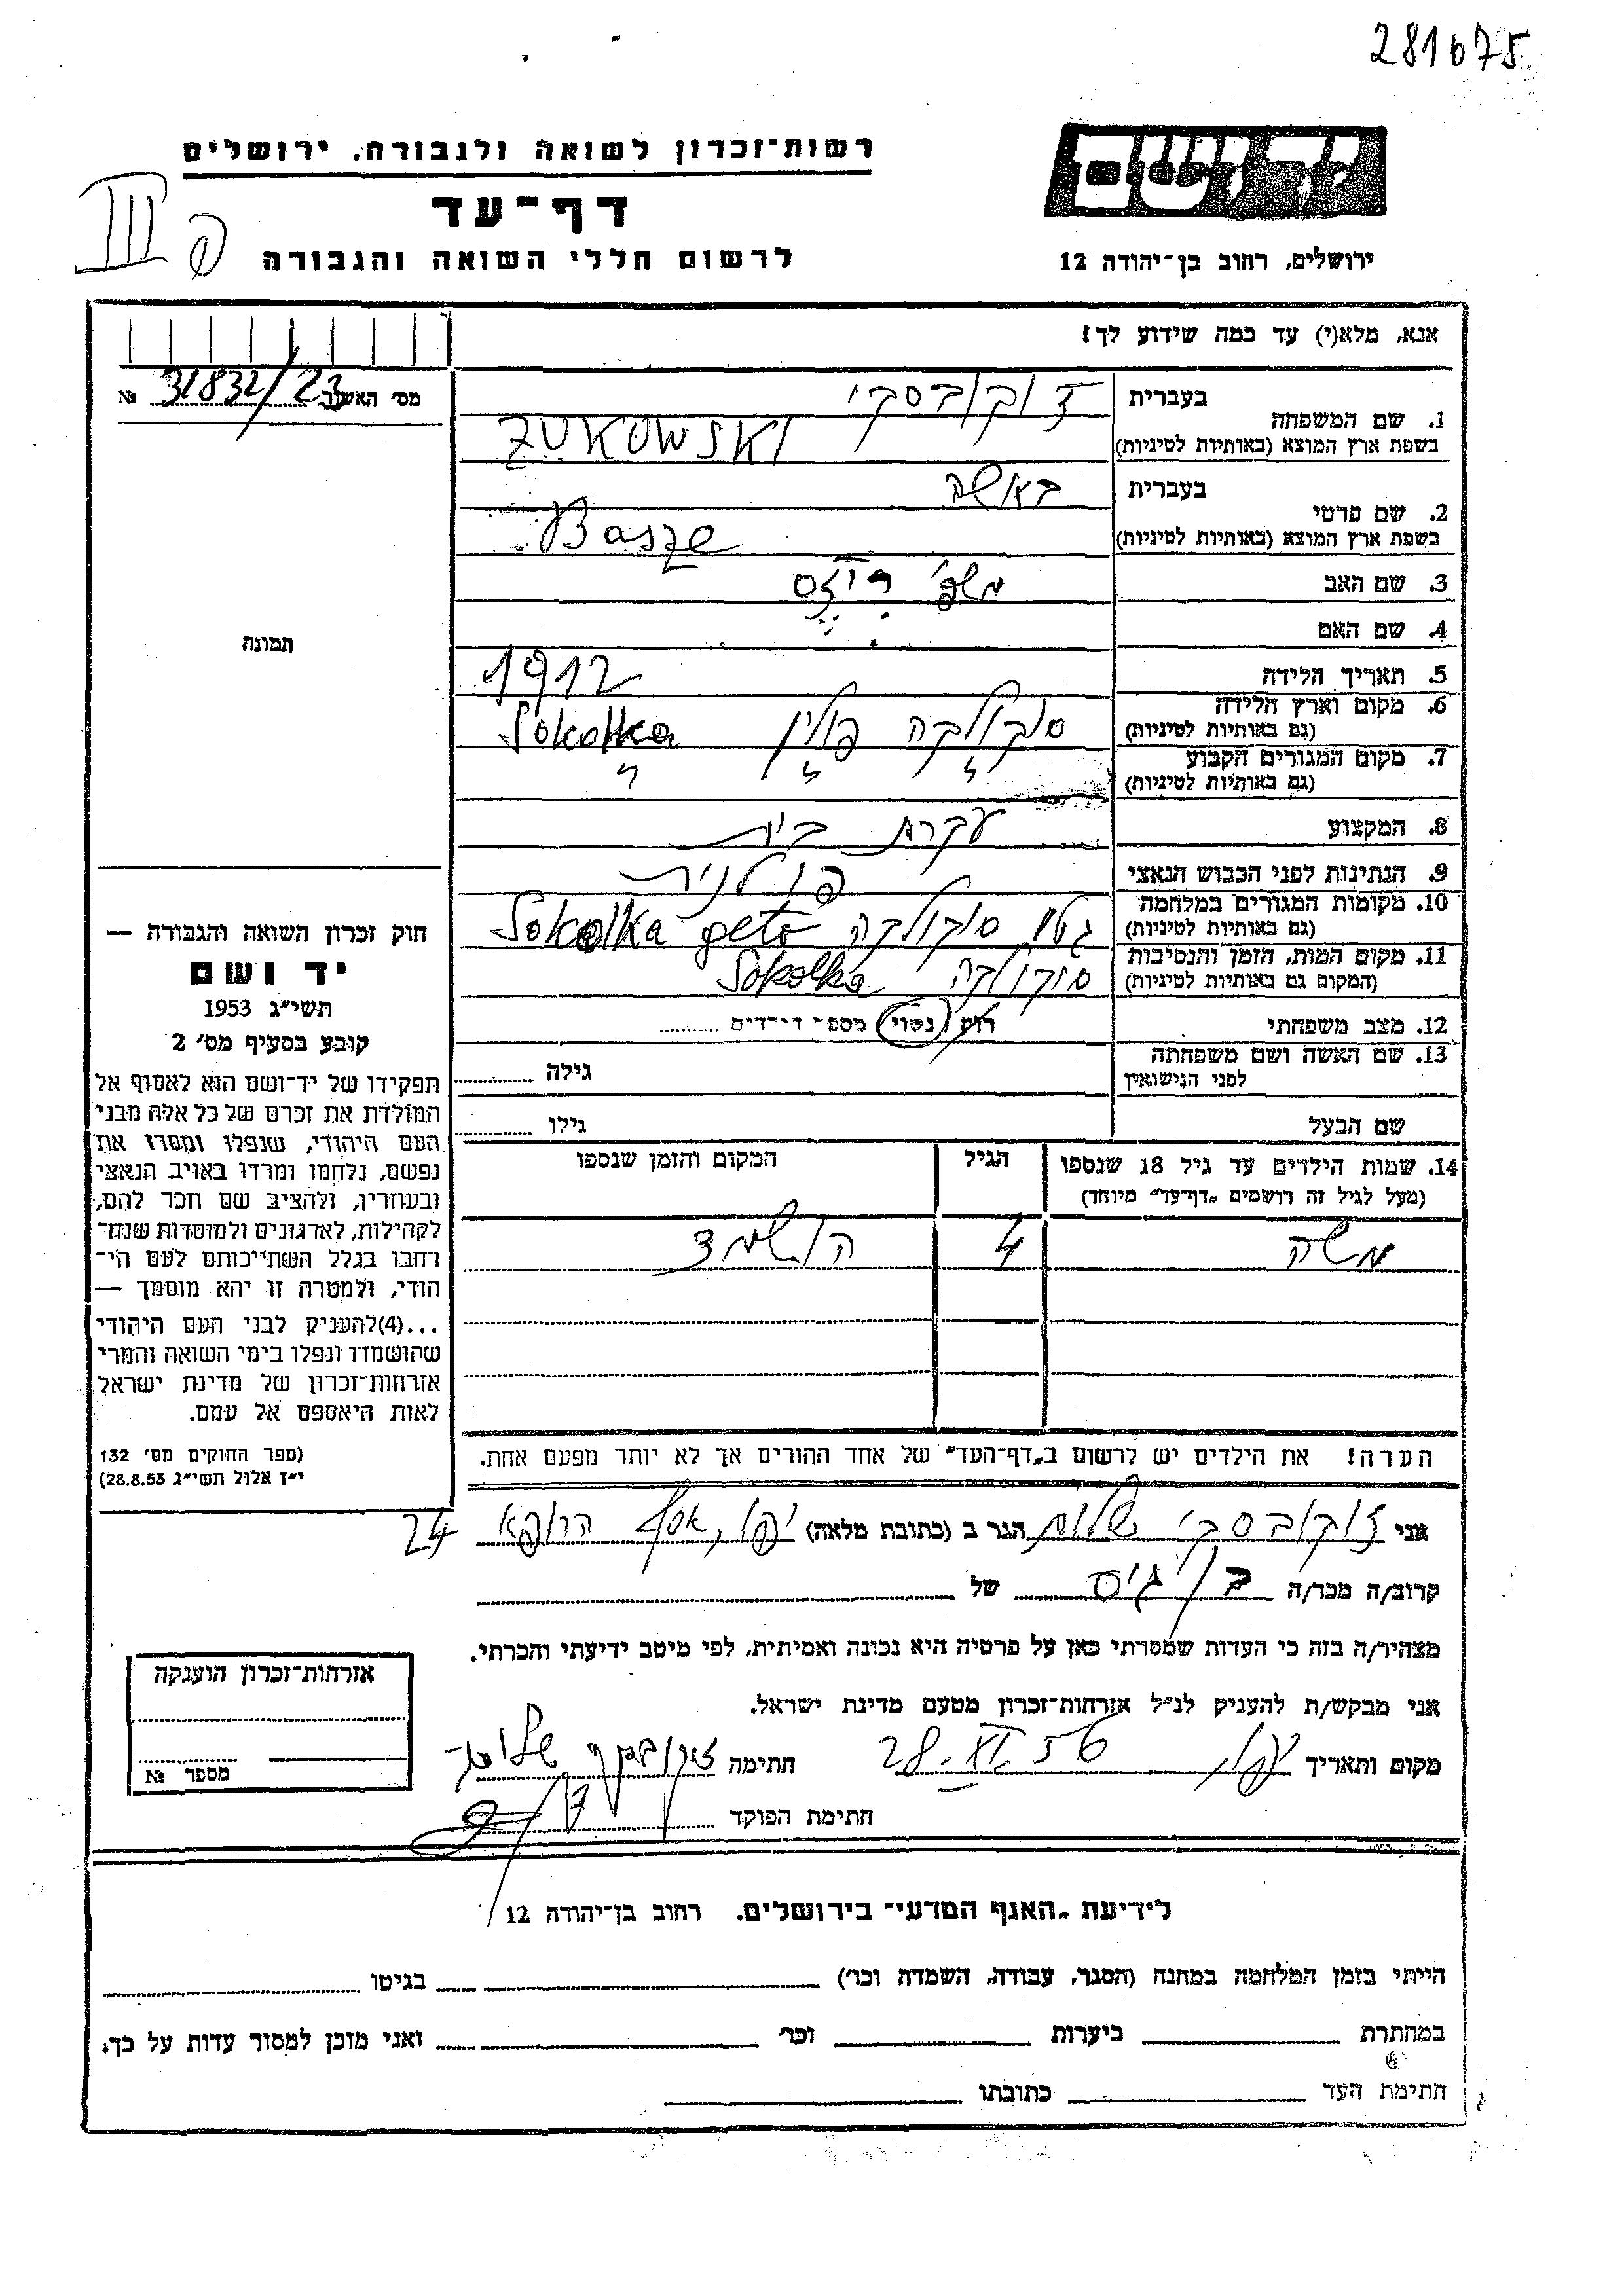 281675
רשות־זכרון לשואה ולגבורה, ירושלים
יד ושם
דף־עד
III
לרשום חללי השואה והגבורה
ירושלים, רחוב בן־יהודה 12
אנא, מלא(י) עד כמה שידוע לך!
מס׳ האשור 31832/23 №
1. שם המשפחה
בעברית ז'וקובסקי
בשפת ארץ המוצא (באותיות לטיניות) ZUKOWSKI
2. שם פרטי
בעברית באשה
בשפת ארץ המוצא (באותיות לטיניות) Basze
3. שם האב
4. שם האם
5. תאריך הלידה 1912
6. מקום וארץ הלידה
(גם באותיות לטיניות) סוקולקה פולין Sokolka
7. מקום המגורים הקבוע
(גם באותיות לטיניות)
8. המקצוע עקרת בית
9. הנתינות לפני הכבוש הנאצי פולנית
10. מקומות המגורים במלחמה
(גם באותיות לטיניות) גטו סוקולקה Sokolka geto
11. מקום המות, הזמן והנסיבות
(המקום גם באותיות לטיניות) סוקולקה Sokolka
12. מצב משפחתי רוק/נשוי מספר־ילדים
13. שם האשה ושם משפחתה
לפני הנישואין גילה
שם הבעל גילו
14. שמות הילדים עד גיל 18 שנספו
(מעל לגיל זה רושמים „דף־עד״ מיוחד)
הגיל
המקום והזמן שנספו
משה 4 הושמד
הערה! את הילדים יש לרשום ב„דף־העד״ של אחד ההורים אך לא יותר מפעם אחת.
תמונה
חוק זכרון השואה והגבורה —
יד ושם
תשי״ג 1953
קובע בסעיף מס׳ 2
תפקידו של יד־ושם הוא לאסוף אל
המולדת את זכרם של כל אלה מבני
העם היהודי, שנפלו ומסרו את
נפשם, נלחמו ומרדו באויב הנאצי
ובעוזריו, ולהציב שם וזכר להם,
לקהילות, לארגונים ולמוסדות שנח־
רחבו בגלל השתייכותם לעם הי־
הודי, ולמטרה זו יהא מוסמך —
...(4)להעניק לבני העם היהודי
שהושמדו ונפלו בימי השואה והמרי
אזרחות־זכרון של מדינת ישראל
לאות היאספם אל עמם.
(ספר החוקים מס׳ 132
י״ז אלול תשי״ג 28.8.53)
אני ז'וקובסקי שלום הגר ב (כתובת מלאה) יפו, אסף הרופא 24
קרוב/ה מכר/ה גיס של
מצהיר/ה בזה כי העדות שמסרתי כאן על פרטיה היא נכונה ואמיתית, לפי מיטב ידיעתי והכרתי.
אני מבקש/ת להעניק לנ״ל אזרחות־זכרון מטעם מדינת ישראל.
מקום ותאריך יפו, 28. 56 חתימה ז'וקובסקי שלום
חתימת הפוקד
אזרחות־זכרון הוענקה
מספר №
לידיעת „האגף המדעי״ בירושלים. רחוב בן־יהודה 12
הייתי בזמן המלחמה במחנה (הסגר, עבודה, השמדה וכו׳) בגיטו
במחתרת ביערות וכו׳ ואני מוכן למסור עדות על כך.
חתימת העד כתובתו